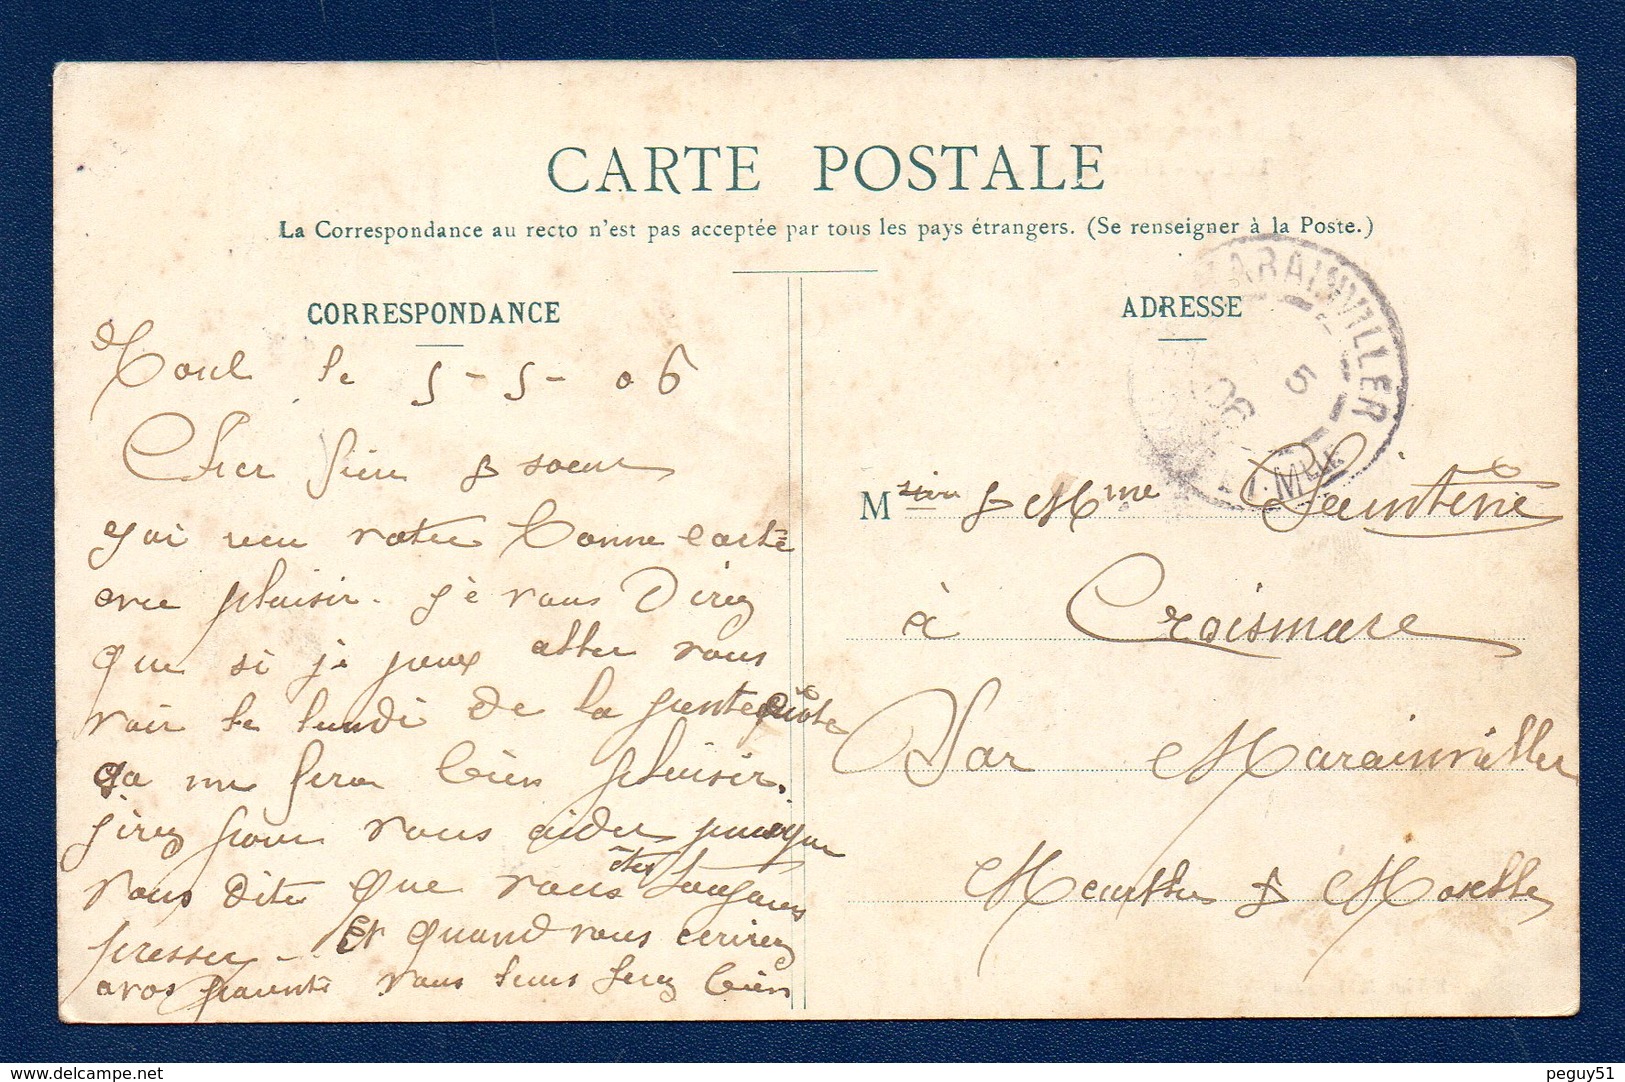 CARTE POSTALE
La Correspondance au recto n'est pas acceptée par tous les pays étrangers. (Se renseigner à la Poste.)
CORRESPONDANCE
Toul le 5-5-06
Cher frère & soeur
j'ai reçu votre bonne carte
avec plaisir. Je vous direz
que si je peux aller vous
voir le lundi de la pentecôte
ça me fera bien plaisir.
j'irez pour vous aider puisque
vous dite que vous êtes toujours
presser. Et quand vous écrirez
a vos parents vous leurs ferez bien
ADRESSE
MARAINVILLER
5
5
06
Msieur & Mme Saintené
à Croismare
Par Marainviller
Meurthe & Moselle
peguy51